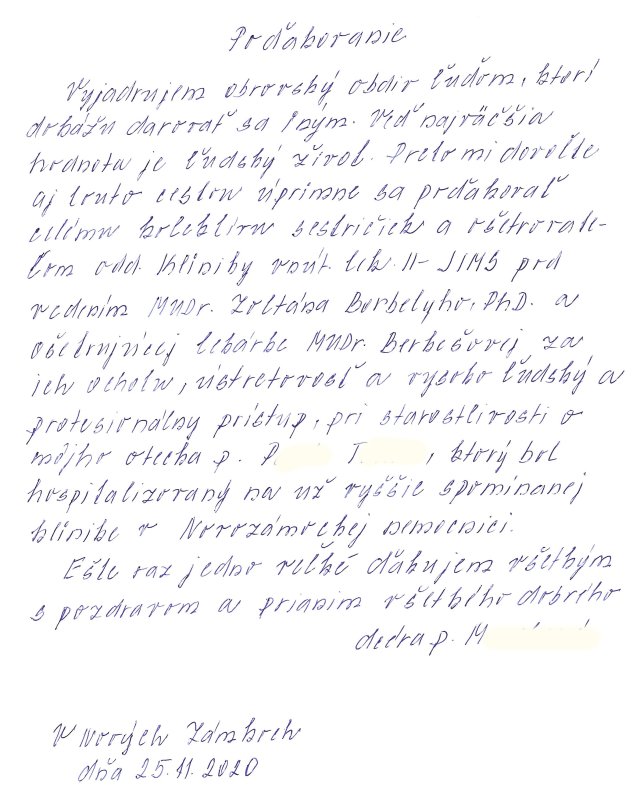 Poďakovanie
Vyjadrujem obrovský obdiv ľuďom, ktorí
dokážu darovať sa iným. Veď najväčšia
hodnota je ľudský život. Preto mi dovoľte
aj touto cestou úprimne sa poďakovať
celému kolektívu sestričiek a ošetrovate-
ľom odd. Kliniky vnút. lek. II - JIMS pod
vedením MUDr. Zoltána Berbelyho, PhD. a
ošetrujúcej lekárke MUDr. Berkešovej za
ich ochotu, ústretovosť a vysoko ľudský a
profesionálny prístup, pri starostlivosti o
môjho otecka p. P T , ktorý bol
hospitalizovaný na už vyššie spomínanej
klinike v Novozámockej nemocnici.
Ešte raz jedno veľké ďakujem všetkým
s pozdravom a prianim všetkého dobrého
dcéra p. M
V Nových Zámkoch
dňa 25.11.2020